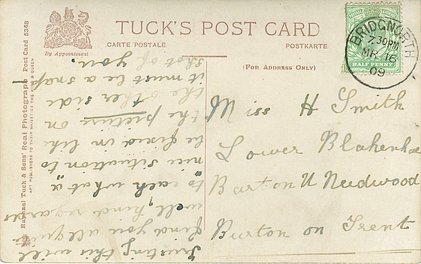 TUCK'S POST CARD
CARTE POSTALE
POSTKARTE
(FOR ADDRESS ONLY)
By Appointment
Raphael Tuck & Sons' Real Photograph Post Card 5368
ART PUBLISHERS TO THEIR MAJESTIES THE KING & THE QUEEN
BRIDGNORTH
7.30PM
MR 16
09
HALF PENNY
Miss H Smith
Lower Blakenha
Barton U Needwood
Burton on Trent
Trusting this will
find you all quite
well, kind regards
to each what a
nice situation to
be in
the picture on
the other side
it must be a snap
shot of you.